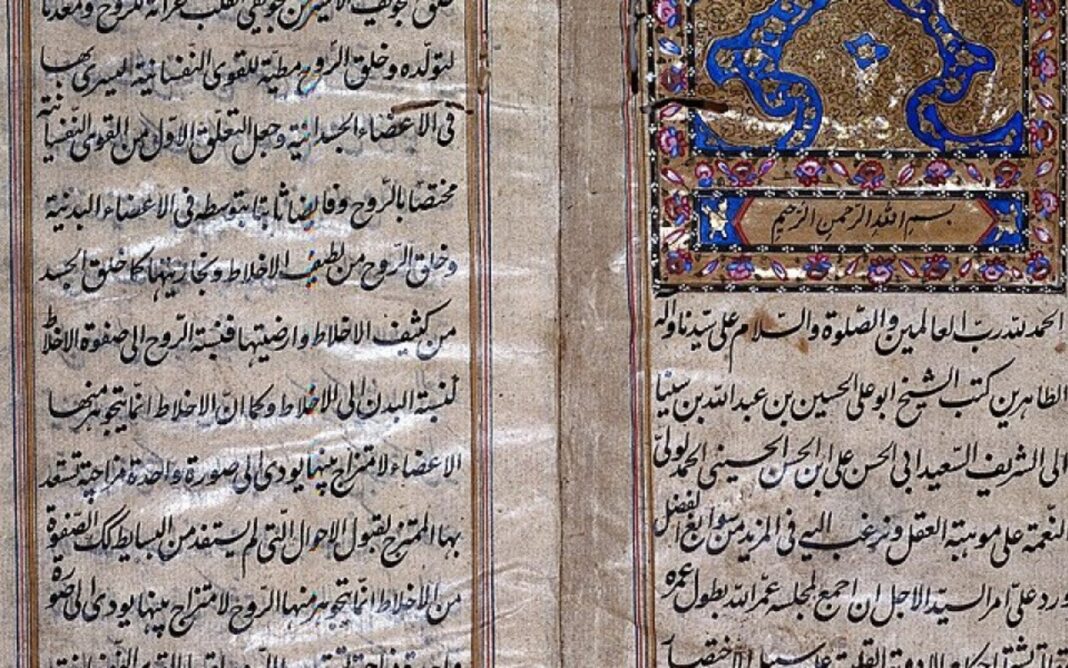 بسم الله الرحمن الرحيم
الحمد لله رب العالمين والصلوة والسلام على سيدنا وآله
الطاهرين كتب الشيخ ابو على الحسين بن عبد الله بن سينا
الى الشريف السعيد ابى الحسن على ابن الحسن الحسينى الحمد لولىّ
النعمة على موهبة العقل ونرغب اليه فى المزيد من سوابغ الفضل
ورد علىّ امر السيد الاجل ان اجمع لمجلسه عمّر الله بطول عمره
خلق تجويف الايسر من تجويفى القلب خزانة للروح ومعدنا
لتولده وخلق الروح مطية للقوى النفسانية اليسرى بها
فى الاعضاء الجسدانية وجعل التعلق الاول من القوى النفسانية
مختصا بالروح وفايضا ثابتا بتوسطه فى الاعضاء البدنية
وخلق الروح من لطيف الاخلاط وبخاريتها كما خلق الجسد
من كثيف الاخلاط وارضيتها فنسبة الروح الى صفوة الاخلاط
لنسبة البدن الى الاخلاط وكما انّ الاخلاط انما يتجوهر منها
الاعضاء لامتزاج بينها يودى الى صورة واحدة مزاجية تستعد
بها الممتزج لقبول الاحوال التى لم يستفد من البسايط كك الصفوة
من الاخلاط انما يتجوهر منها الروح لامتزاج بينها يودى الى صورة